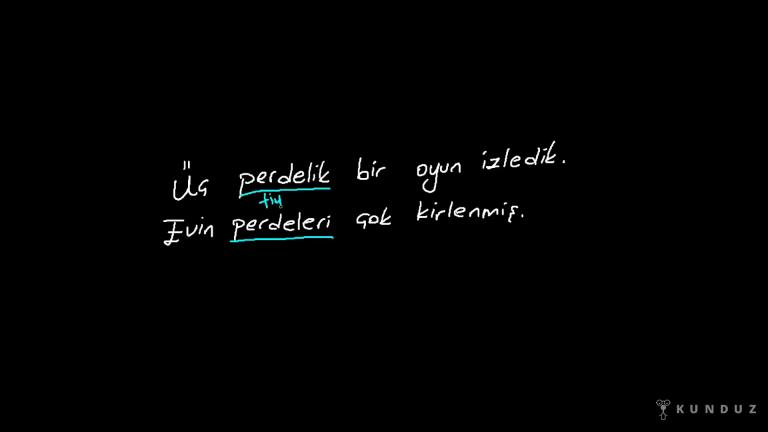 Üç perdelik bir oyun izledik.
tiy
Evin perdeleri çok kirlenmiş.
KUNDUZ